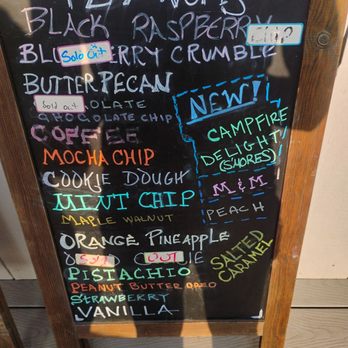 BLACK RASPBERRY CHIP
BLU Sold Out ERRY CRUMBLE
BUTTER PECAN
Sold out OLATE
CHOCOLATE CHIP
COFFEE
MOCHA CHIP
COOKIE DOUGH
MINT CHIP
MAPLE WALNUT
ORANGE PINEAPPLE
OUT
PISTACHIO
PEANUT BUTTER OREO
STRAWBERRY
VANILLA
NEW!
CAMPFIRE
DELIGHT
(S'MORES)
M&M
PEACH
SALTED
CARAMEL